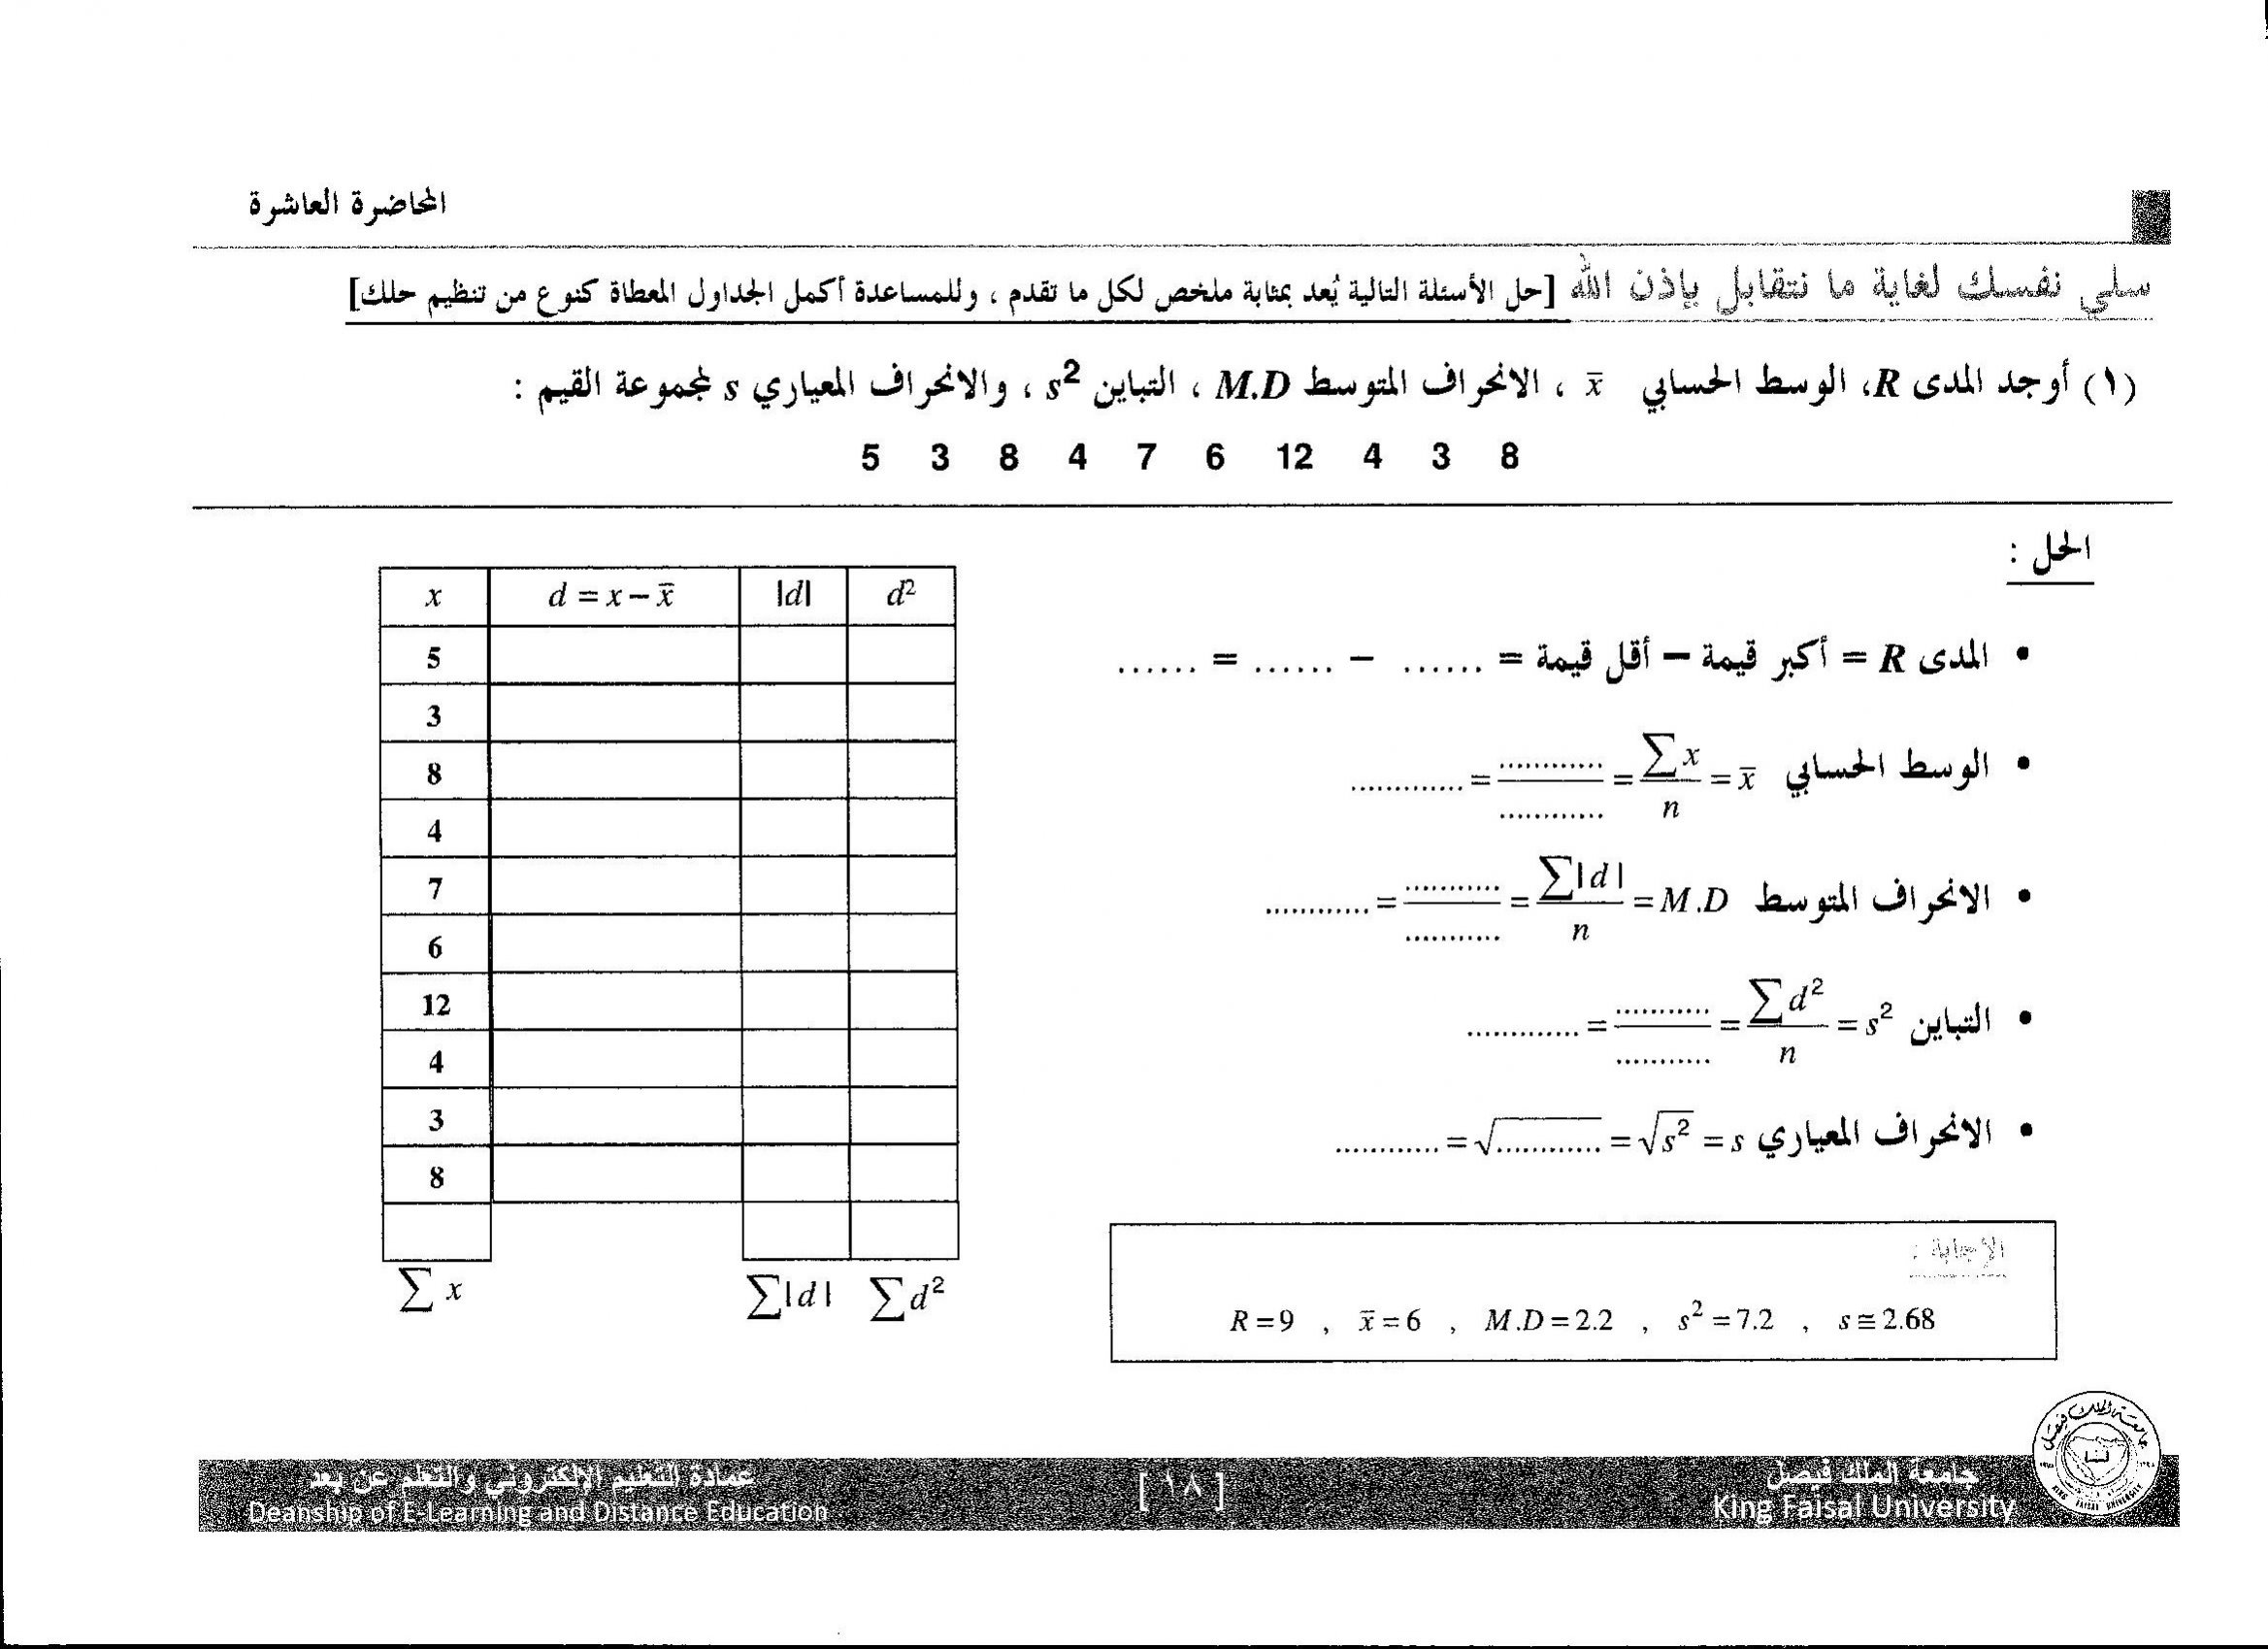 المحاضرة العاشرة
سلي نفسك لغاية ما نتقابل بإذن الله [حل الأسئلة التالية يُعد بمثابة ملخص لكل ما تقدم ، وللمساعدة أكمل الجداول المعطاة كنوع من تنظيم حلك]
(١) أوجد المدى R، الوسط الحسابي x̄ ، الانحراف المتوسط M.D ، التباين s² ، والانحراف المعياري s لمجموعة القيم :
5 3 8 4 7 6 12 4 3 8
الحل :
• المدى R = أكبر قيمة – أقل قيمة = ...... – ...... = ......
• الوسط الحسابي x̄ = ∑x / n = ............ / ............ = .............
• الانحراف المتوسط M.D = ∑|d| / n = ........... / ........... = ............
• التباين s² = ∑d² / n = ........... / ........... = .............
• الانحراف المعياري s = √s² = √............ = ............
x d = x – x̄ |d| d²
5
3
8
4
7
6
12
4
3
8
∑x ∑|d| ∑d²
الإجابة :
R = 9 , x̄ = 6 , M.D = 2.2 , s² = 7.2 , s ≅ 2.68
جامعة الملك فيصل
King Faisal University
[ ١٨ ]
عمادة التعليم الإلكتروني والتعلم عن بعد
Deanship of E-Learning and Distance Education
جامعة الملك فيصل
KING FAISAL UNIVERSITY